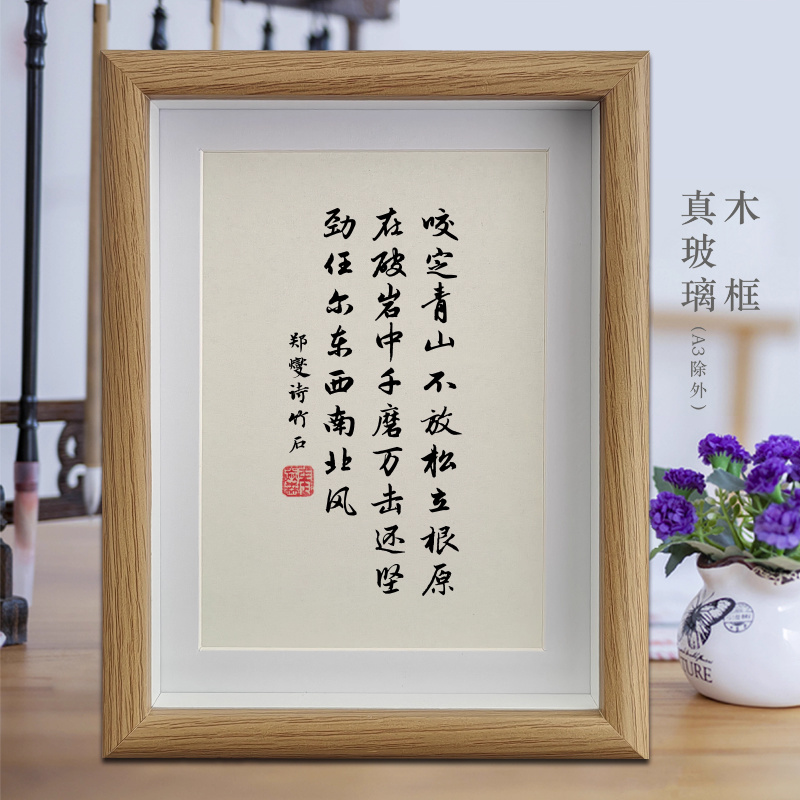 咬定青山不放松立根原
在破岩中千磨万击还坚
劲任尔东西南北风
郑燮诗竹石
木框
真玻璃(A3除外)